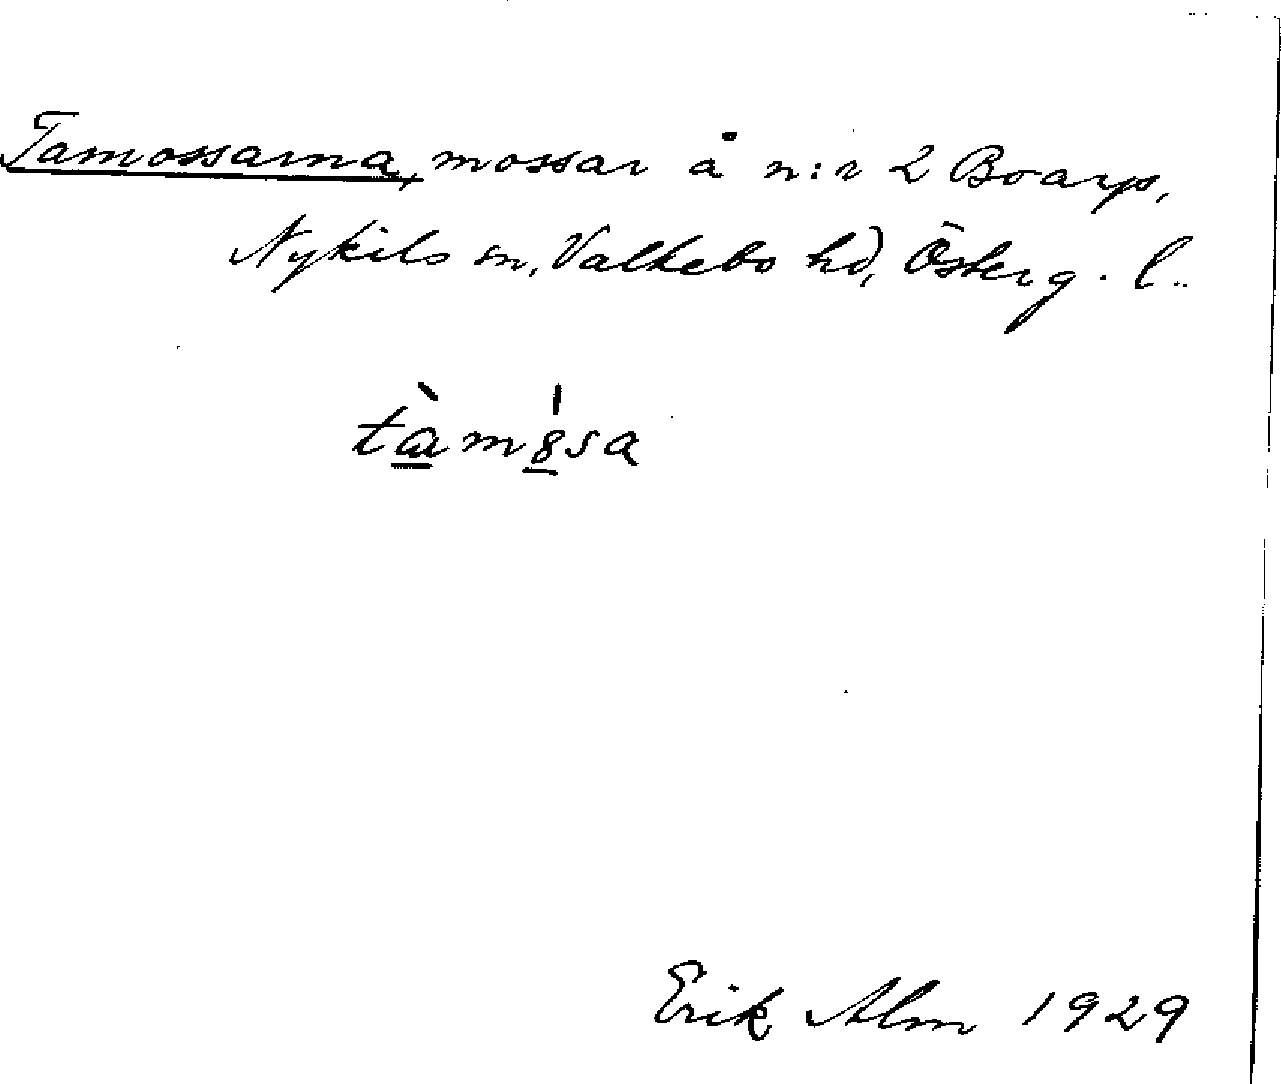 Tamossarna, mossar å n:r 2 Boarp,
Nykils sn, Valkebo hd, Österg. l..
tàmósa
Erik Alm 1929